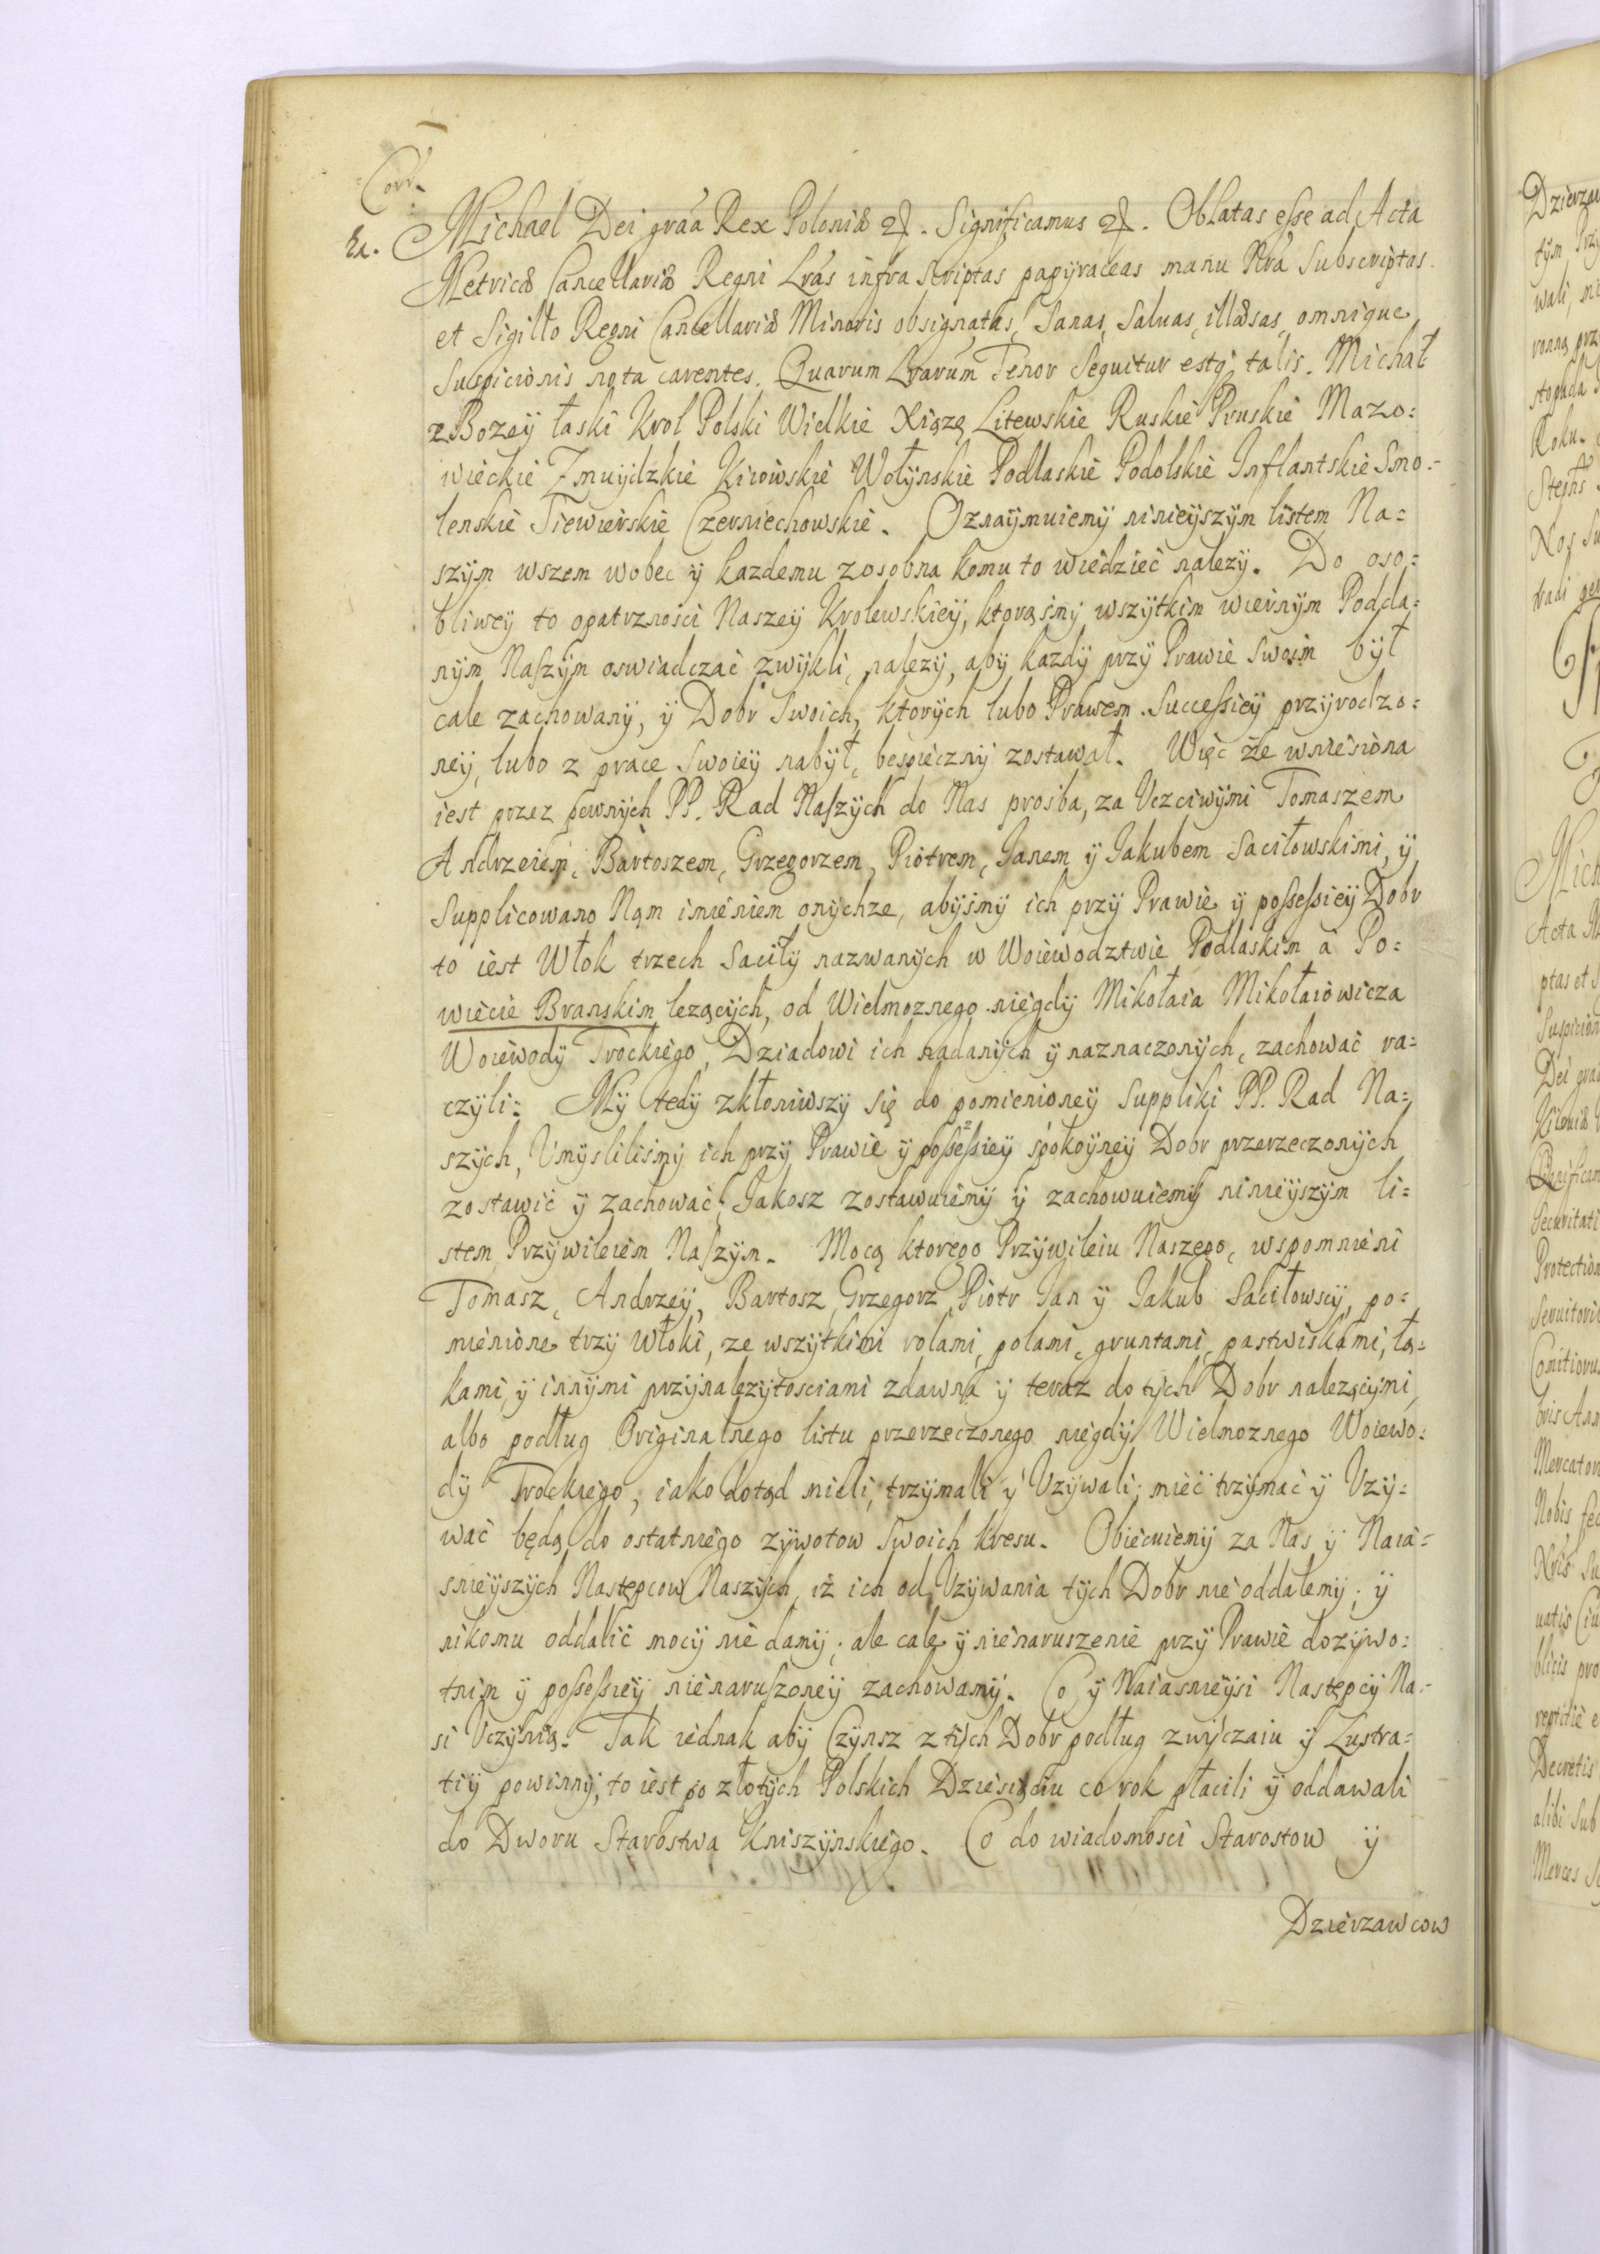 Corr.
Ex.
Michael Dei gráa Rex Poloniæ &. Significamus &. Oblatas esse ad Acta
Metricæ Cancellariæ Regni Lrás infra scriptas papÿraceas manu Nrá Subscriptas
et Sigillo Regni Cancellariæ Minoris obsignatas, Sanas, Saluas, illæsas, omnique
Suspicionis nota carentes. Quarum Lrarum Tenor Sequitur estq; talis. Michał
z Bozeÿ łaski Krol Polski Wielkie Xiązę Litewskie Ruskie Pruskie Mazo:
wieckie Zmuÿdzkie Kiiowskie Wołÿnskie Podlaskie Podolskie Inflantskie Smo:
lenskie Siewierskie Czerniechowskie. Oznaÿmuiemÿ ninieÿszÿm listem Na:
szÿm wszem wobec ÿ kazdemu zosobna komu to wiedziec nalezÿ. Do oso:
bliweÿ to opatrznosci Naszeÿ Krolewskieÿ, ktorąsmÿ wszÿtkim wiernÿm Podda:
nÿm Naszÿm oswiadczac zwÿkli, nalezÿ, abÿ kazdÿ przÿ Prawie Swoim bÿł
cale zachowanÿ, ÿ Dobr Swoich, ktorÿch lubo Prawem Successieÿ przÿrodzo:
neÿ, lubo z prace Swoieÿ nabÿł, bespiecznÿ zostawał. Więc że wniesiona
iest przez pewnÿch PP. Rad Naszÿch do Nas prosba, za Vczciwÿmi Tomaszem
Andrzeiem, Bartoszem, Grzegorzem, Piotrem, Janem ÿ Jakubem Saciłowskimi, ÿ
Supplicowano Nam imieniem onÿchze, abÿsmÿ ich przÿ Prawie ÿ possessieÿ Dobr
to iest Włok trzech Saciłÿ nazwanÿch w Woiewodztwie Podlaskim a Po:
wiecie Branskim lezącÿch, od Wielmoznego niegdÿ Mikołaia Mikołaiowicza
Woiewodÿ Trockiego, Dziadowi ich nadanÿch ÿ naznaczonÿch, zachować ra:
czÿli: Mÿ tedÿ zkłoniwszÿ się do pomienioneÿ Suppliki PP. Rad Na:
szÿch, Vmÿslilismÿ ich przÿ Prawie ÿ possessieÿ spokoÿneÿ Dobr przerzeczonÿch
zostawić ÿ zachować, Jakosz zostawuiemÿ ÿ zachowuiemÿ ninieÿszÿm li:
stem Przÿwileiem Naszÿm. Mocą ktorego Przÿwileiu Naszego, wspomnieni
Tomasz, Andrzeÿ, Bartosz, Grzegorz, Piotr Jan ÿ Jakub Saciłowscÿ, po:
mienione trzÿ Włoki, ze wszÿtkimi rolami, polami, gruntami, pastwiskami, łą:
kami, ÿ innÿmi przÿnalezÿtosciami zdawna ÿ teraz do tÿch Dobr nalezącÿmi,
albo podług Originalnego listu przerzeczonego niegdÿ Wielmoznego Woiewo:
dÿ Trockiego, iako dotąd mieli, trzÿmali ÿ Vzÿwali, miec trzÿmac ÿ Vzÿ:
wać będą do ostatniego zÿwotow Swoich kresu. Obiecuiemÿ za Nas ÿ Naia:
snieÿszÿch Nastepcow Naszÿch, iż ich od Vzÿwania tÿch Dobr nie oddalemÿ, ÿ
nikomu oddalić mocÿ nie damÿ, ale cale ÿ nienaruszenie przÿ Prawie dozÿwo:
tnim ÿ possessieÿ nienaruszoneÿ zachowamÿ. Co ÿ Naiasnieÿsi Nastepcÿ Na:
si Vczÿnią. Tak iednak abÿ Czÿnsz z tÿch Dobr podług zwÿczaiu ÿ Lustra:
tiÿ powinnÿ, to iest po złotÿch Polskich Dziesiąciu co rok płacili ÿ oddawali
do Dworu Starostwa Kniszÿnskiego. Co do wiadomosci Starostow ÿ
Dzierzawcow